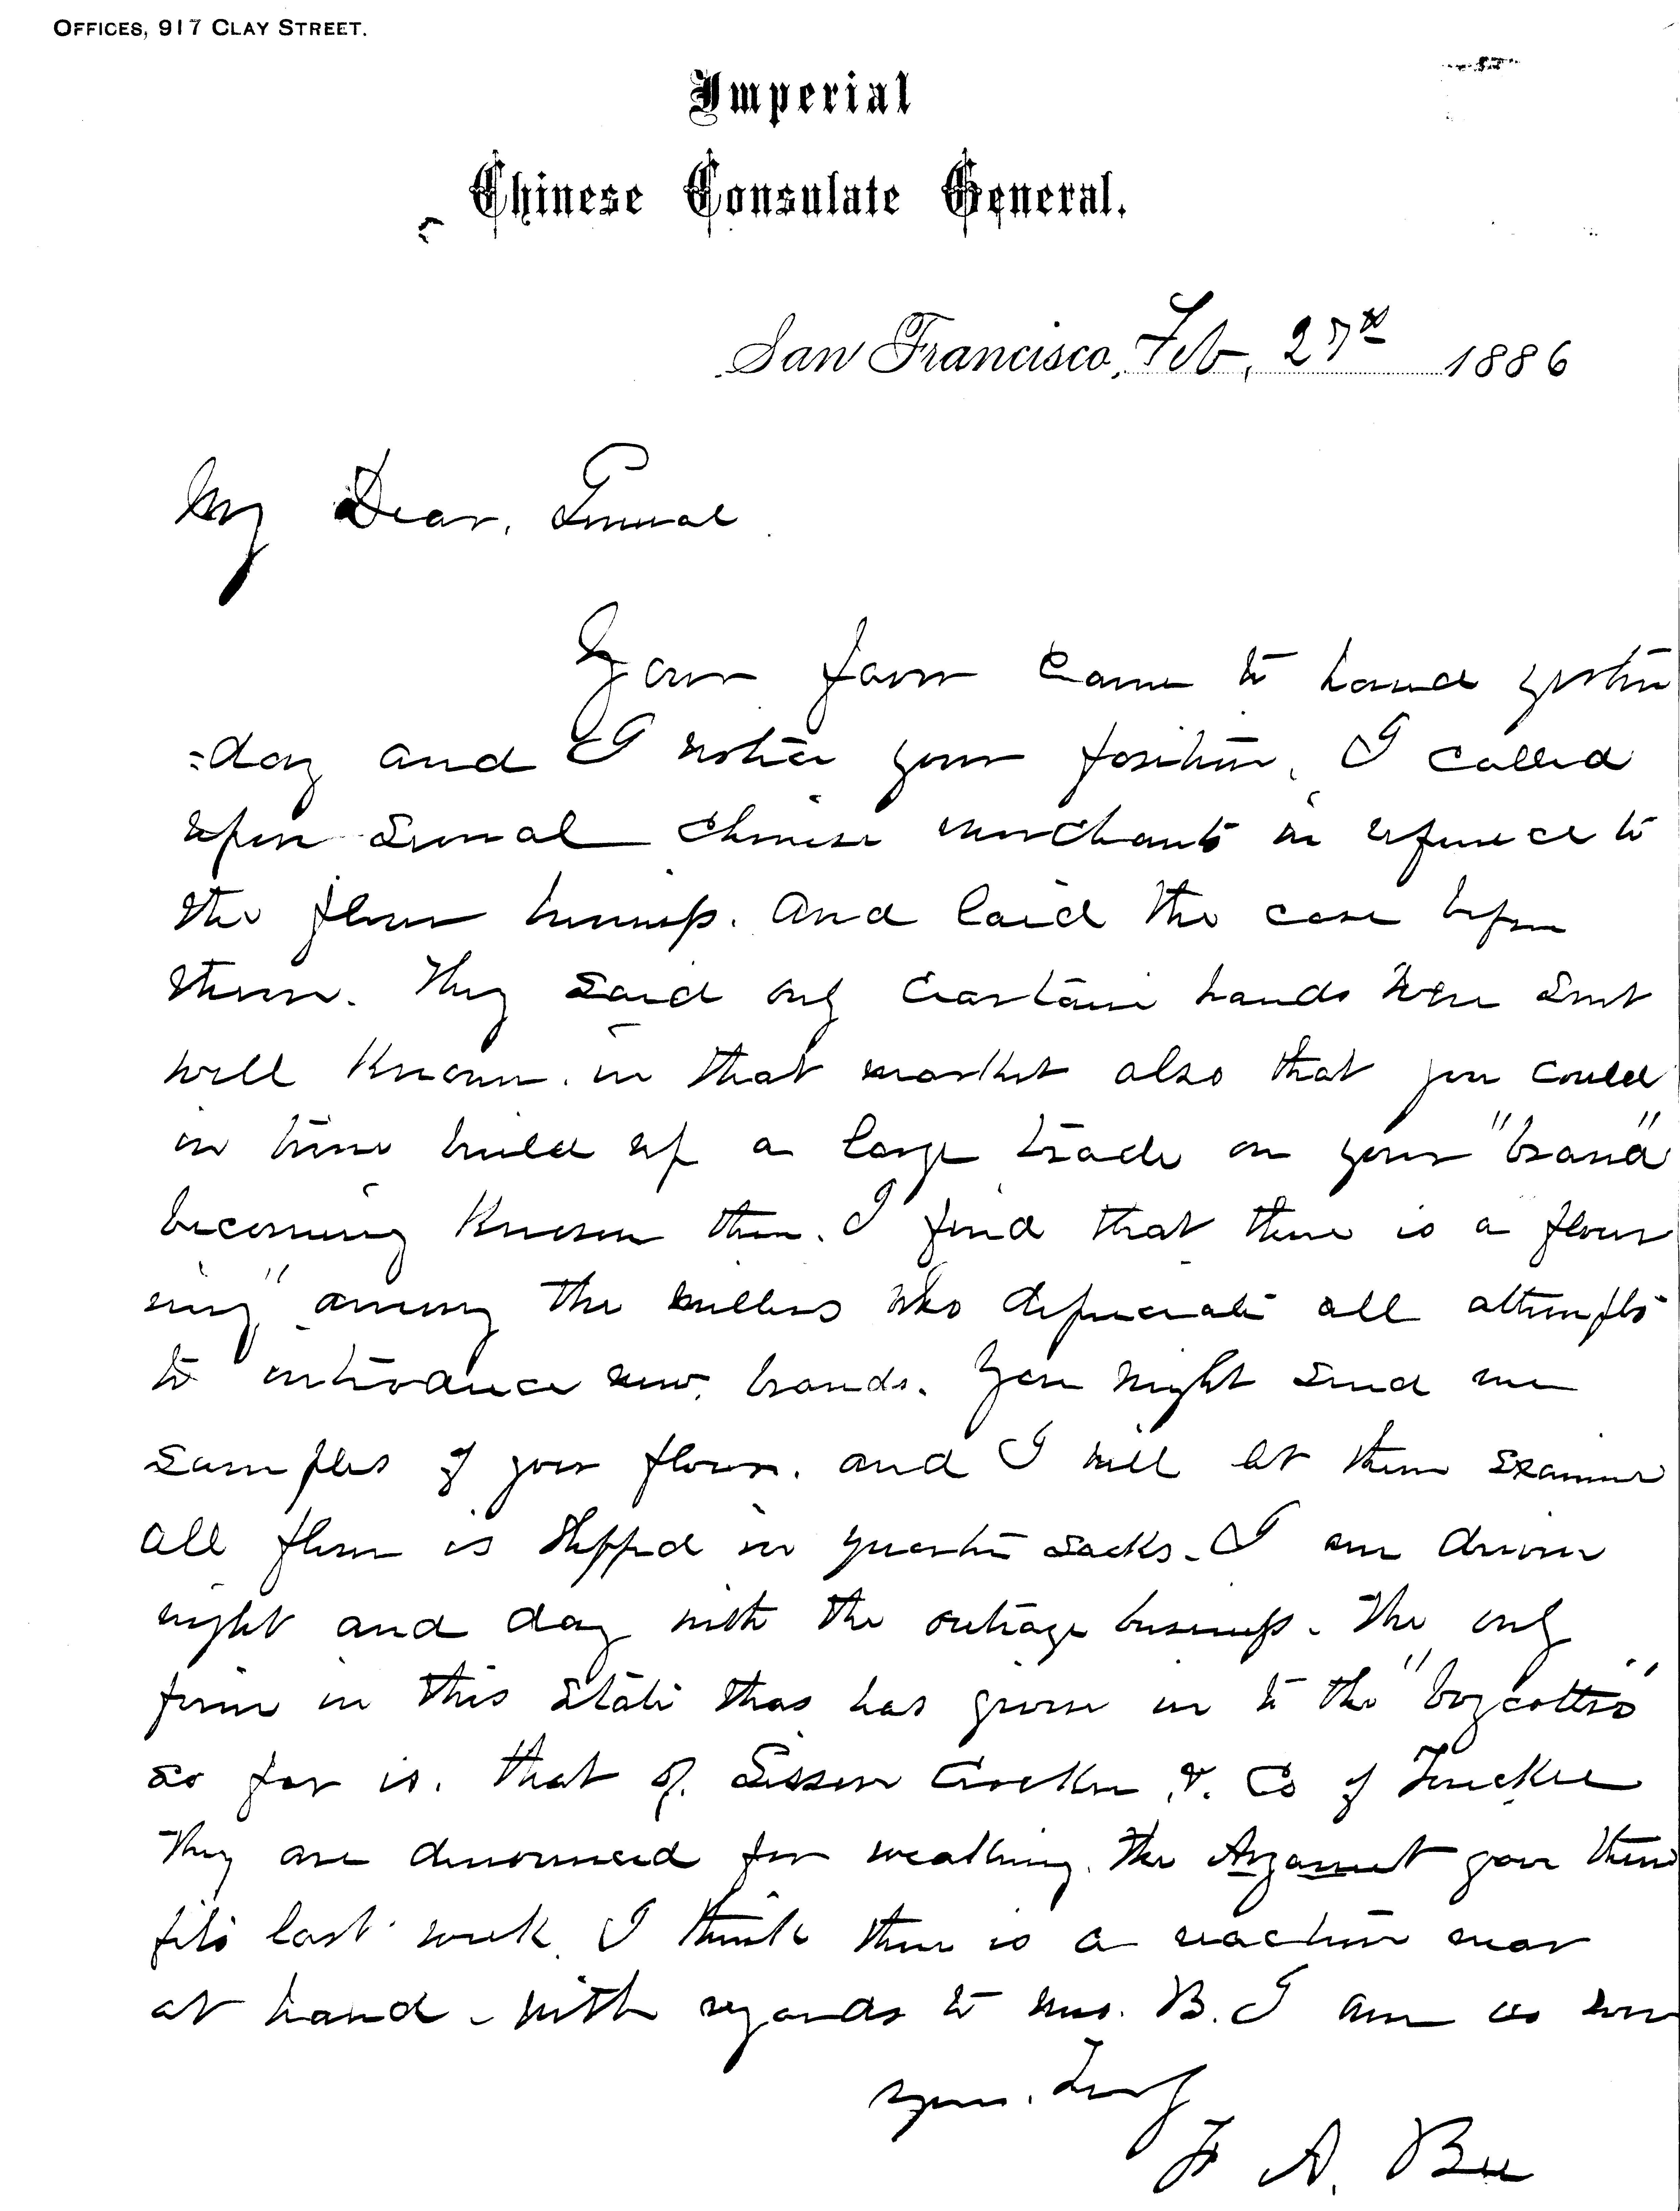 OFFICES, 917 CLAY STREET.
Imperial
Chinese Consulate General.
San Francisco, Feb, 27th 1886
My Dear, General
Your favor came to hand yester
=day and I notice your position, I called
upon several Chinese merchants in reference to
the flour business. and laid the case before
them. They said only certain brands were sent
well known. in that market also that you could
in time build up a large trade on your "brand"
becoming known then. I find that there is a flour
ring" among the millers who depreciate all attempts
to introduce new brands. You might send me
samples of your flour. and I will let them examine
all flour is shipped in quarter sacks. I am driven
night and day with the outrage business. The only
firm in this State thas has given in to the "boycotters"
so far is. that of Sisson Crocker & Co of Truckee
They are denounced for weakening. The Argonaut gave them
fits last week. I think there is a reaction near
at hand. With regards to Mrs. B. I am as ever
Yours. Truly
F A. Bee